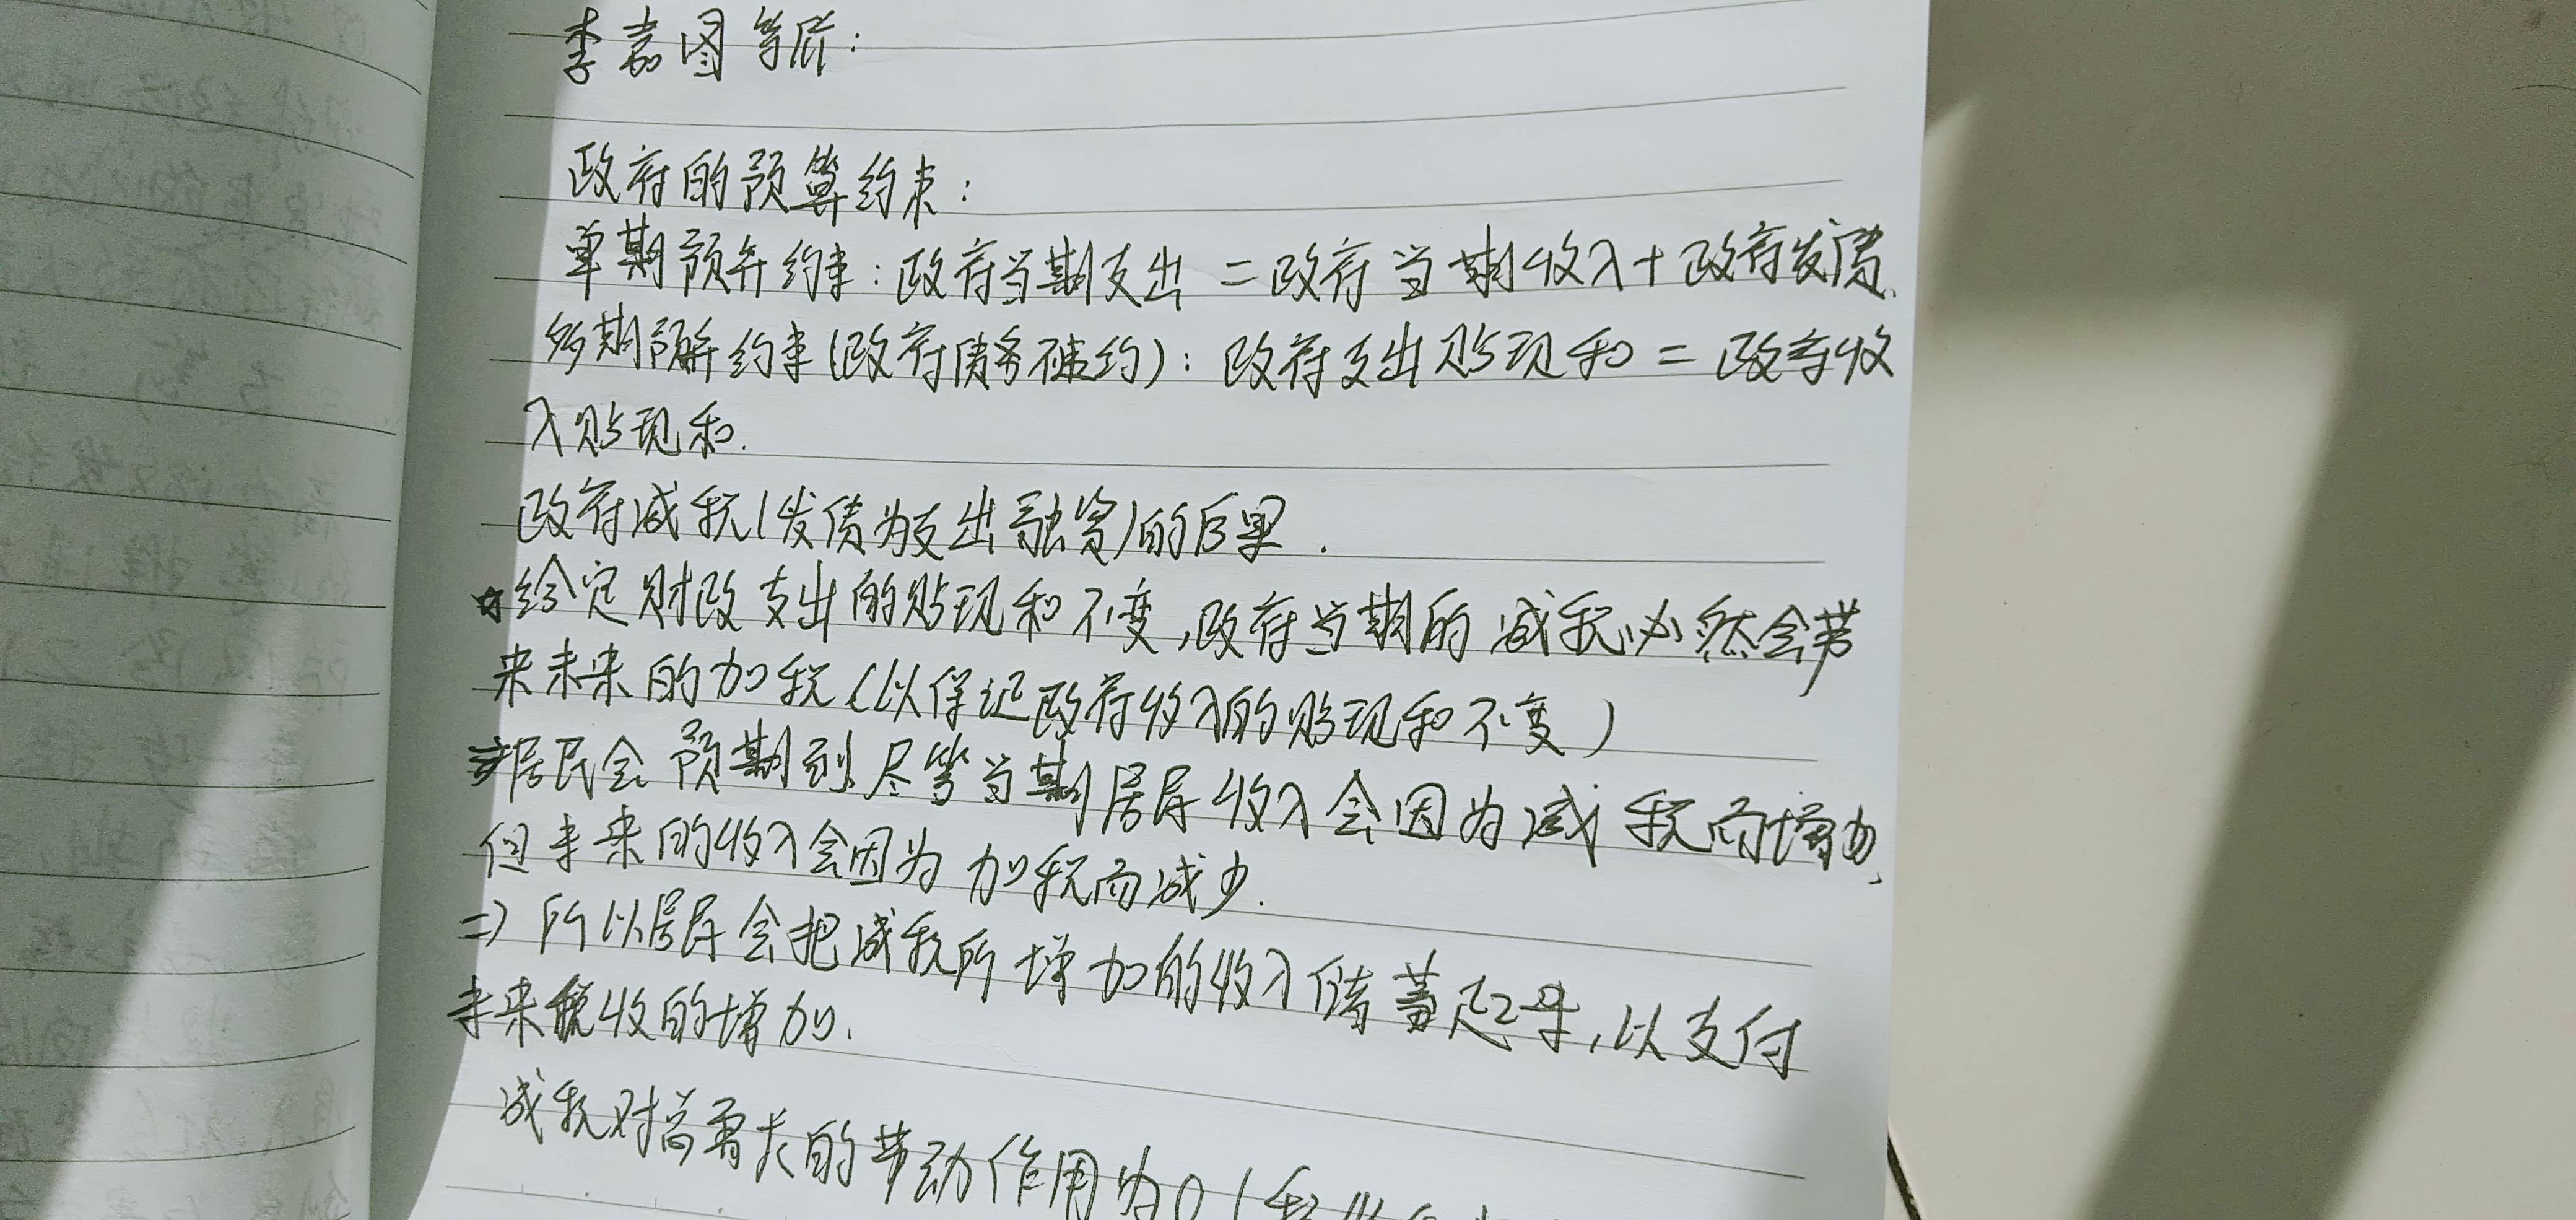 李嘉图等价:
政府的预算约束:
单期预算约束:政府当期支出=政府当期收入+政府发债.
多期预算约束(政府债务不违约):政府支出贴现和=政府收
入贴现和.
政府减税(发债为支出融资)的后果.
给定财政支出的贴现和不变,政府当期的减税必然会带
来未来的加税(以保证政府收入的贴现和不变)
居民会预期到尽管当期居民收入会因为减税而增加,
但未来的收入会因为加税而减少.
=〉所以居民会把减税所增加的收入储蓄起来,以支付
未来税收的增加.
减税对总需求的带动作用为0(